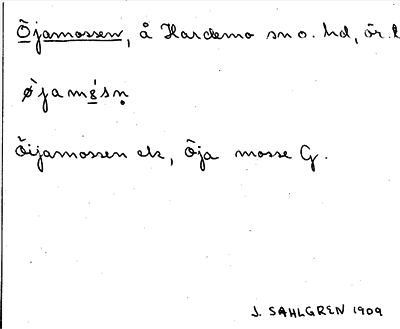 Öjamossen, å Hardemo sn o. hd, ör. l
ø̀jamǫ́sn̥
Öijamossen ek, Öja mosse G.
J. SAHLGREN 1909